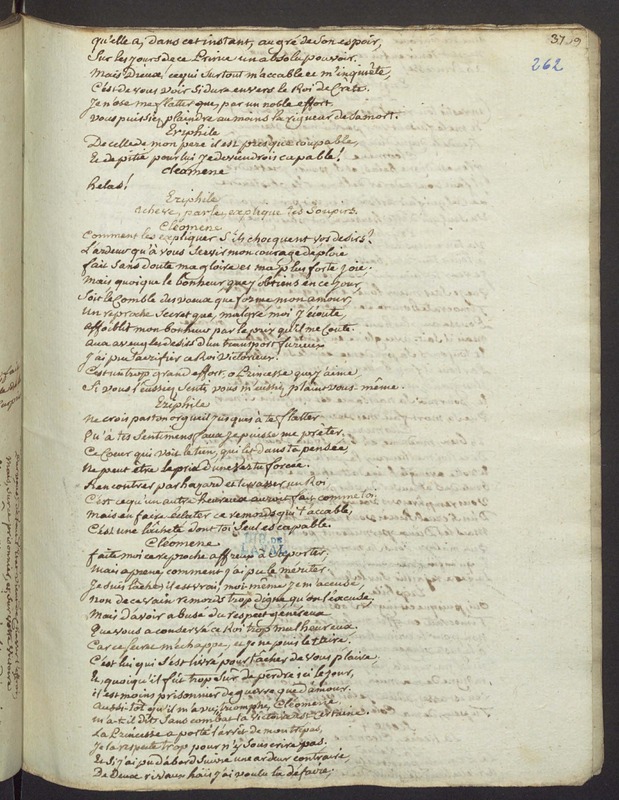 37 9
262
qu'elle a, dans cet instant, au gré de son espoir,
Sur les jours de ce Prince un absolu pouvoir.
Mais Dieux, ce qui surtout m'accable et m'inquiète,
C'est de vous voir si dure envers le Roi de Crete.
Je n'ose me flatter que, par un noble effort
vous puissiez plaindre au moins la rigueur de sa mort.
Eriphile
De celle de mon pere il est presque coupable,
Et de pitié pour lui je deviendrois capable!
Cleomene
helas!
Eriphile
acheve, parle, explique tes soupirs.
Cleomene
Comment les expliquer s'ils choquent vos desirs?
L'ardeur qu'à vous servir mon courage déploie
fait sans doute ma gloire et ma plus forte joie.
Mais quoique le bonheur que j'obtiens en ce jour,
Soit le comble des vœux que forme mon amour,
Un reproche secret que, malgré moi j'écoute,
affoiblit mon bonheur par le prix qu'il me coute.
Aux aveugles desirs d'un transport furieux
J'ai pu sacrifier ce Roi victorieux.
C'est un trop grand effort, o Princesse que j'aime,
Si vous l'eussiez senti, vous m'eussiez plaint vous-même.
Eriphile
Ne crois pas ton orgueil jusques à te flatter
Qu'à tes sentimens faux je puisse me prêter.
Ce Cœur qui voit le tien, qui lit dans ta pensée,
Ne peut être le prix d'une vertu forcée.
Rencontrer par hazard et terrasser un Roi
C'est ce qu'un autre heureux auroit fait comme toi,
Mais en faire éclater ce remords qui t'accable,
C'est une lâcheté dont toi seul es capable.
Cleomene
faites moi ce reproche affreux à supporter,
Mais aprenez comment j'ai pu le mériter.
Je suis lâche, il est vrai, moi-même je m'accuse,
Non de ce vain remords trop digne qu'on l'excuse,
Mais d'avoir abusé du respect généreux
Que vous a conservé ce Roi trop malheureux.
Car ce secret m'échappe, et je ne puis le taire.
C'est lui qui s'est livré pour tâcher de vous plaire.
Et, quoiqu'il fut trop sûr de perdre ici le jour,
il est moins prisonnier de guerre que d'amour.
Aussi-tôt qu'il m'a vu, triomphe, Cléomene,
m'a-t-il dit, Sans combat ta victoire est certaine.
La Princesse a porté l'arrêt de mon trepas,
Je la respecte trop pour n'y souscrire pas.
Et si j'ai pu d'abord suivre une ardeur contraire
De Deux rivaux haïs j'ai voulu la défaire;